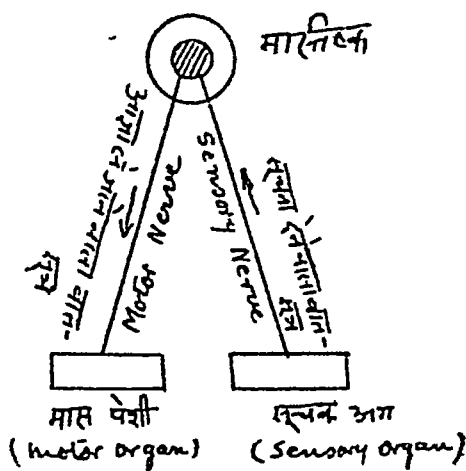 मास्तिष्क
आज्ञा ले जाने वाला वात-
सूत्र
Motor Nerve
Sensory Nerve
सूचना देने वाला वात-
सूत्र
मास पेशी
(motor organ)
सूचक अंग
(Sensory organ)